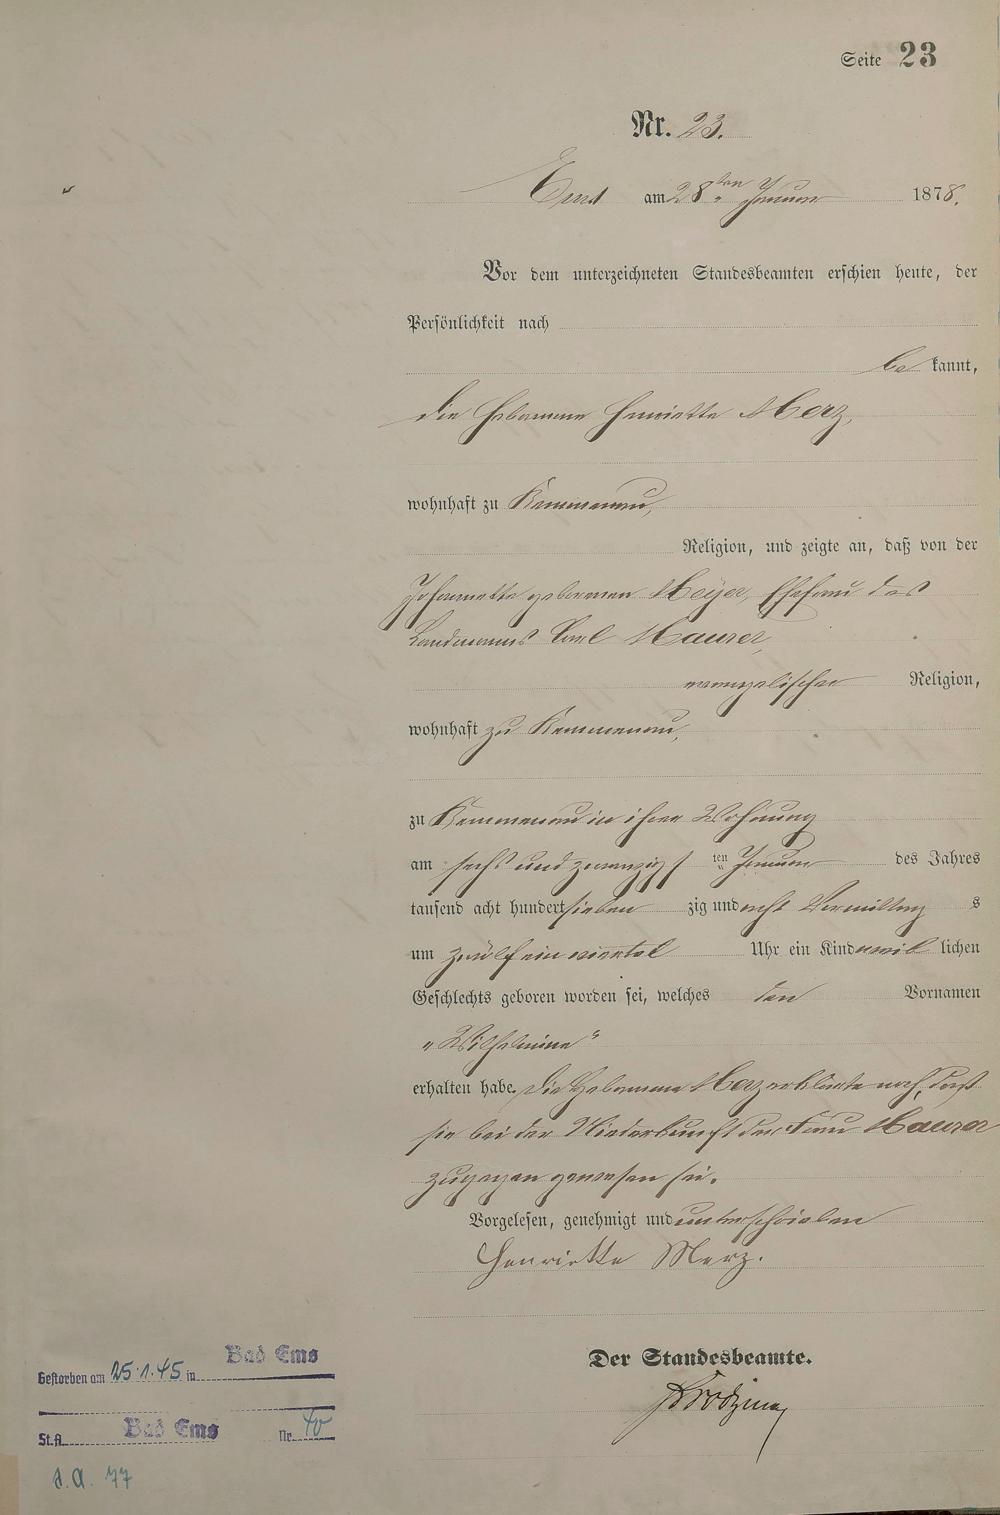 Seite 23
Nr. 23.
Ems am 28ten Januar 1878.
Vor dem unterzeichneten Standesbeamten erschien heute, der
Persönlichkeit nach
be kannt,
die Hebamme Henriette Merz,
wohnhaft zu Kemmenau,
Religion, und zeigte an, daß von der
Johannette geborenen Meyer, Ehefrau des
Landmanns Carl Maurer,
evangelischer Religion,
wohnhaft zu Kemmenau,
zu Kemmenau in ihrer Wohnung
am sechs und zwanzigs ten Januar des Jahres
tausend acht hundert sieben zig und acht Vormittag s
um zwölf ein viertel Uhr ein Kind weib lichen
Geschlechts geboren worden sei, welches den Vornamen
„Wilhelmine“
erhalten habe. Die Hebamme Merz erklärte noch, daß
sie bei der Niederkunft der Frau Maurer
zugegen gewesen sei.
Vorgelesen, genehmigt und unterschrieben
Henriette Merz.
Der Standesbeamte.
Gestorben am 25.1.45 in Bad Ems
St.A. Bad Ems Nr. 40
s.A. 77